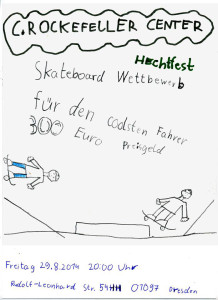 C. ROCKEFELLER CENTER
Hechtfest
Skateboard Wettbewerb
für den coolsten Fahrer
300 Euro Preisgeld
Freitag 29.8.2014 20:00 Uhr
Rudolf-Leonhard Str. 54HH 01097 Dresden